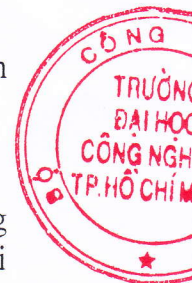 BỘ CÔNG
TRƯỜNG
ĐẠI HỌC
CÔNG NGH
TP.HỒ CHÍ M
n
g
i